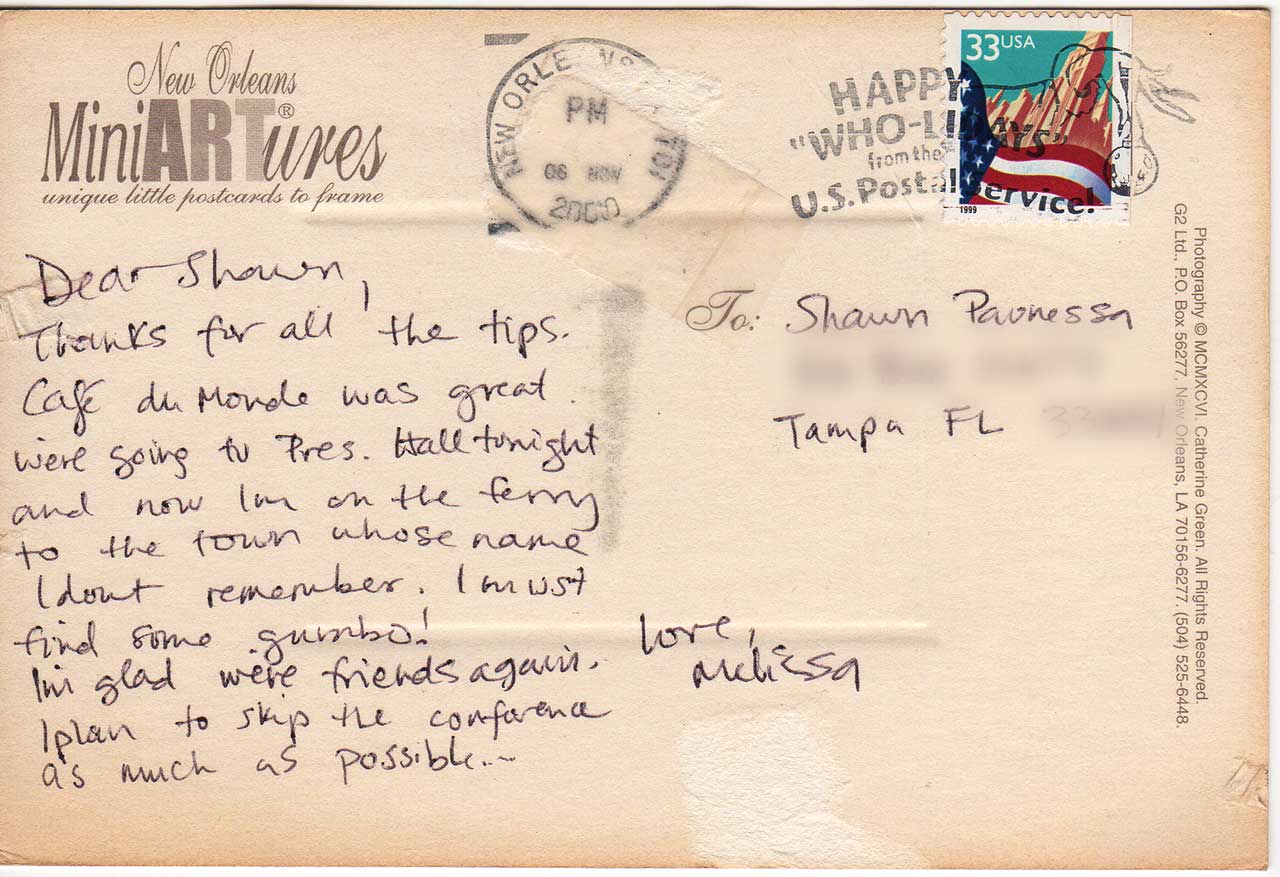 New Orleans
MiniARTures®
unique little postcards to frame
NEW ORLEANS 701
PM
06 NOV
2000
HAPPY
"WHO-LIDAYS"
from the
U.S. Postal Service!
33USA
1999
Dear Shawn,
Thanks for all the tips.
Café du Monde was great.
we're going to Pres. Hall tonight
and now I'm on the ferry
to the town whose name
I don't remember. I must
find some gumbo!
I'm glad we're friends again.
I plan to skip the conference
as much as possible...
Love,
Melissa
To: Shawn Pavnessa
Tampa FL
Photography © MCMXCVI. Catherine Green. All Rights Reserved.
G2 Ltd., P.O. Box 56277, New Orleans, LA 70156-6277. (504) 525-6448.